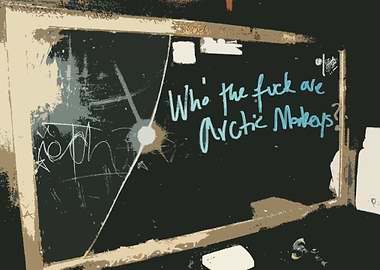 Who the fuck are
Arctic Monkeys?